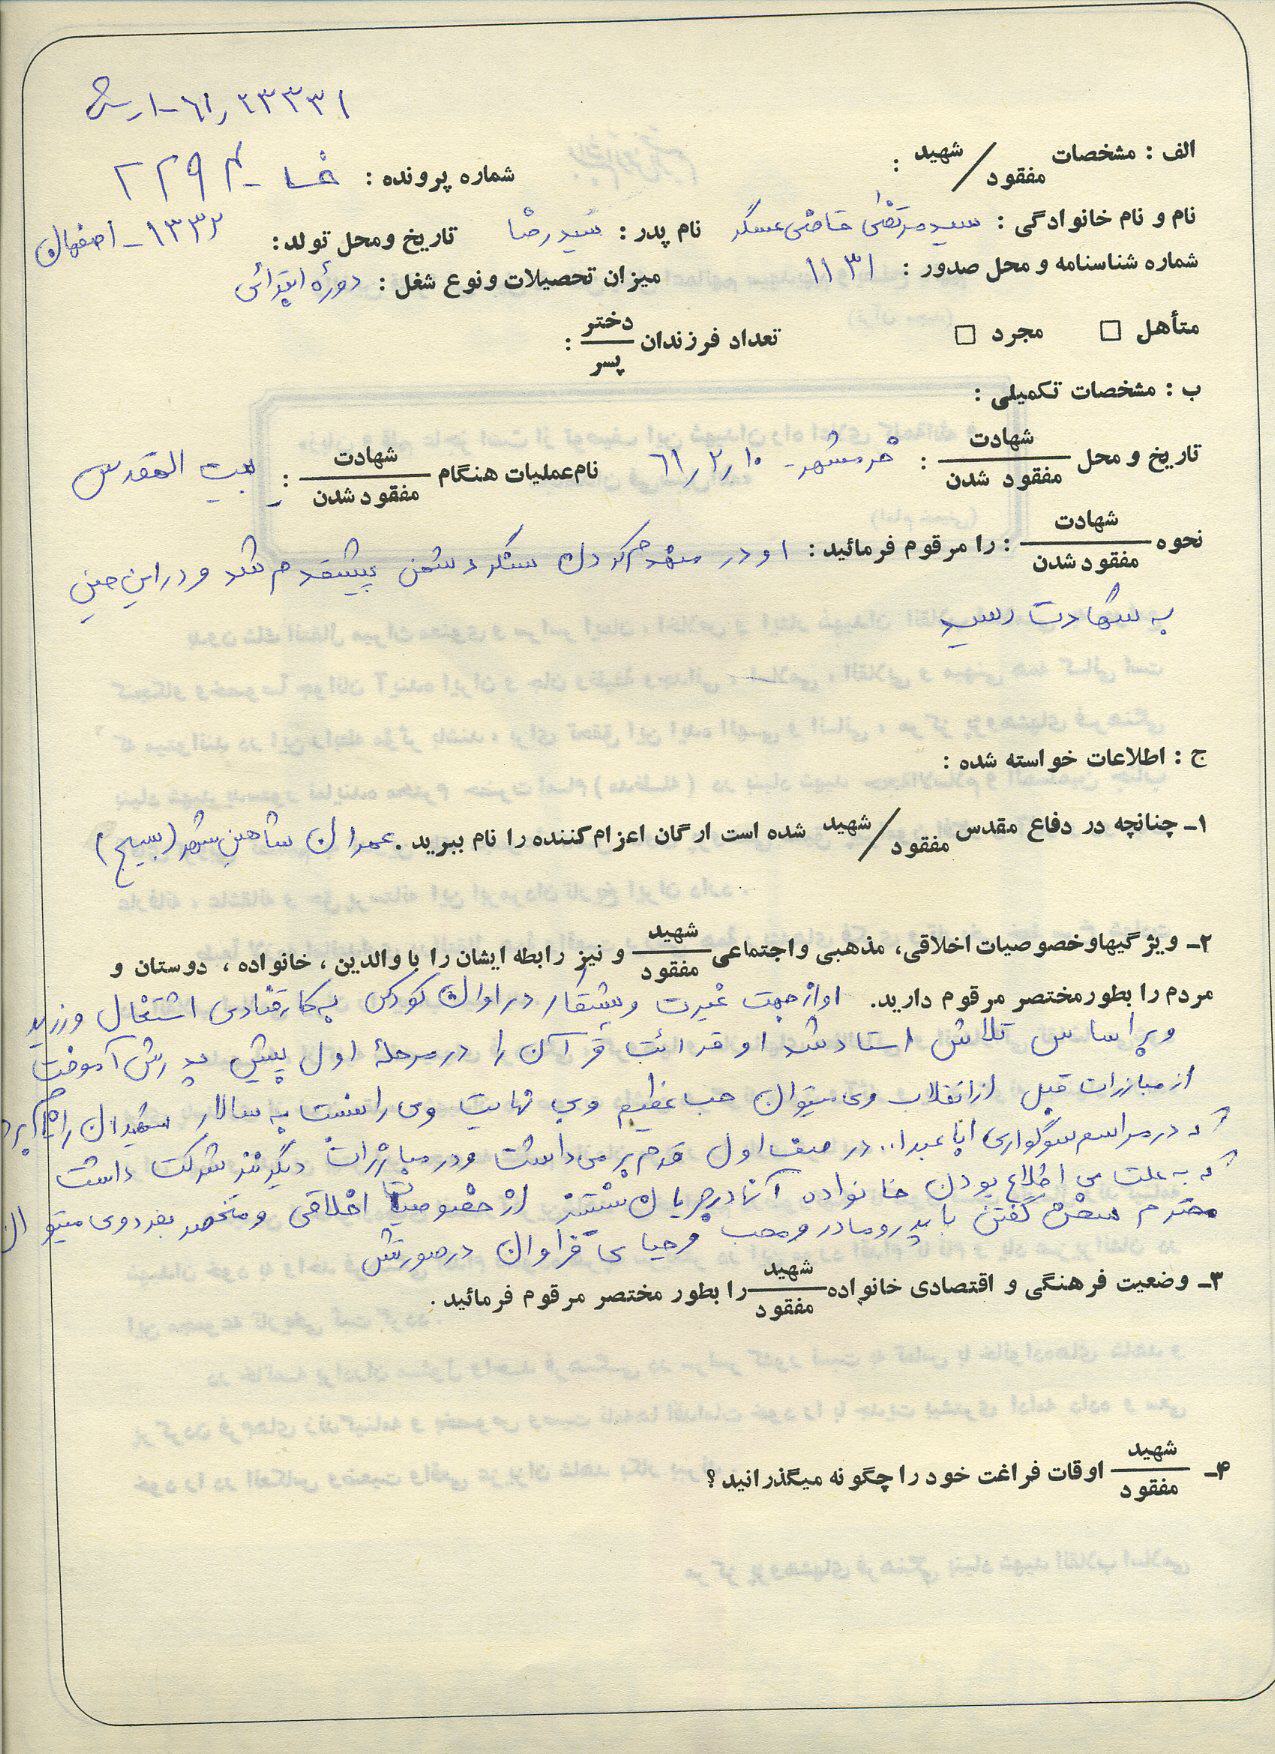 ۶۱٫۲۳۳۳۱-۱
الف : مشخصات شهید / مفقود :
شماره پرونده : ۲۲۹۴
نام و نام خانوادگی : سید مرتضی قاضی عسگر نام پدر : سید رضا تاریخ ومحل تولد: ۱۳۳۲ - اصفهان
شماره شناسنامه و محل صدور : ۱۱۳۱ میزان تحصیلات ونوع شغل : دورهٔ ابتدائی
متأهل □ مجرد □ تعداد فرزندان دختر / پسر :
ب : مشخصات تکمیلی :
تاریخ و محل شهادت / مفقود شدن : خرمشهر - ۶۱٫۲٫۱۰ نام عملیات هنگام شهادت / مفقود شدن : بیت المقدس
نحوه شهادت / مفقود شدن : را مرقوم فرمائید : او در منهدم کردن سنگر دشمن پیشقدم شد و در این حین
به شهادت رسید
ج : اطلاعات خواسته شده :
۱- چنانچه در دفاع مقدس شهید / مفقود شده است ارگان اعزام کننده را نام ببرید . عمران شاهین شهر (بسیج)
۲- ویژگیهاوخصوصیات اخلاقی، مذهبی واجتماعی شهید / مفقود و نیز رابطه ایشان را با والدین ، خانواده ، دوستان و
مردم را بطور مختصر مرقوم دارید. او از جهت غیرت و پشتکار در اوان کودکی به کار قنادی اشتغال ورزید
و بر اساس تلاش استاد شد او قرائت قرآن را در مرحلهٔ اول پیش پدرش آموخت
از مبارزات قبل از انقلاب وی میتوان حب عظیم وبی نهایت وی را نسبت به سالار شهیدان را نام برد
که در مراسم سوگواری ابا عبدا... در صف اول قدم بر می داشت و در مبارزات دیگر نیز شرکت داشت
که به علت بی اطلاع بودن خانواده آنها در جریان نیستند از خصوصیات اخلاقی و منحصر بفرد وی میتوان
محترم سخن گفتن با پدر و مادر و محب و حیای فراوان در صورتش
۳- وضعیت فرهنگی و اقتصادی خانواده شهید / مفقود را بطور مختصر مرقوم فرمائید .
۴- شهید / مفقود اوقات فراغت خود را چگونه میگذرانید ؟